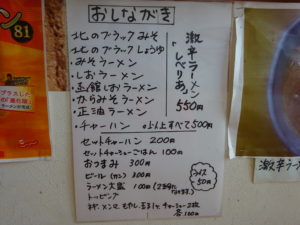 おしながき
北のブラックみそ
北のブラックしょうゆ
・みそラーメン
・しおラーメン
・函館しおラーメン
・からみそラーメン
・正油ラーメン
・チャーハン
以上すべて500円
激辛ラーメン
しべりあ
550円
セットチャーハン 200円
セットチャーシューごはん 100円
おつまみ 300円
ビール(カン) 300円
ラーメン大盛 100円
トッピング
ネギ、メンマ、もやし、玉子1ケ、チャーシュー2枚
各100円
ライス
50円
ラーメン
81
プラスした
激辛ラー